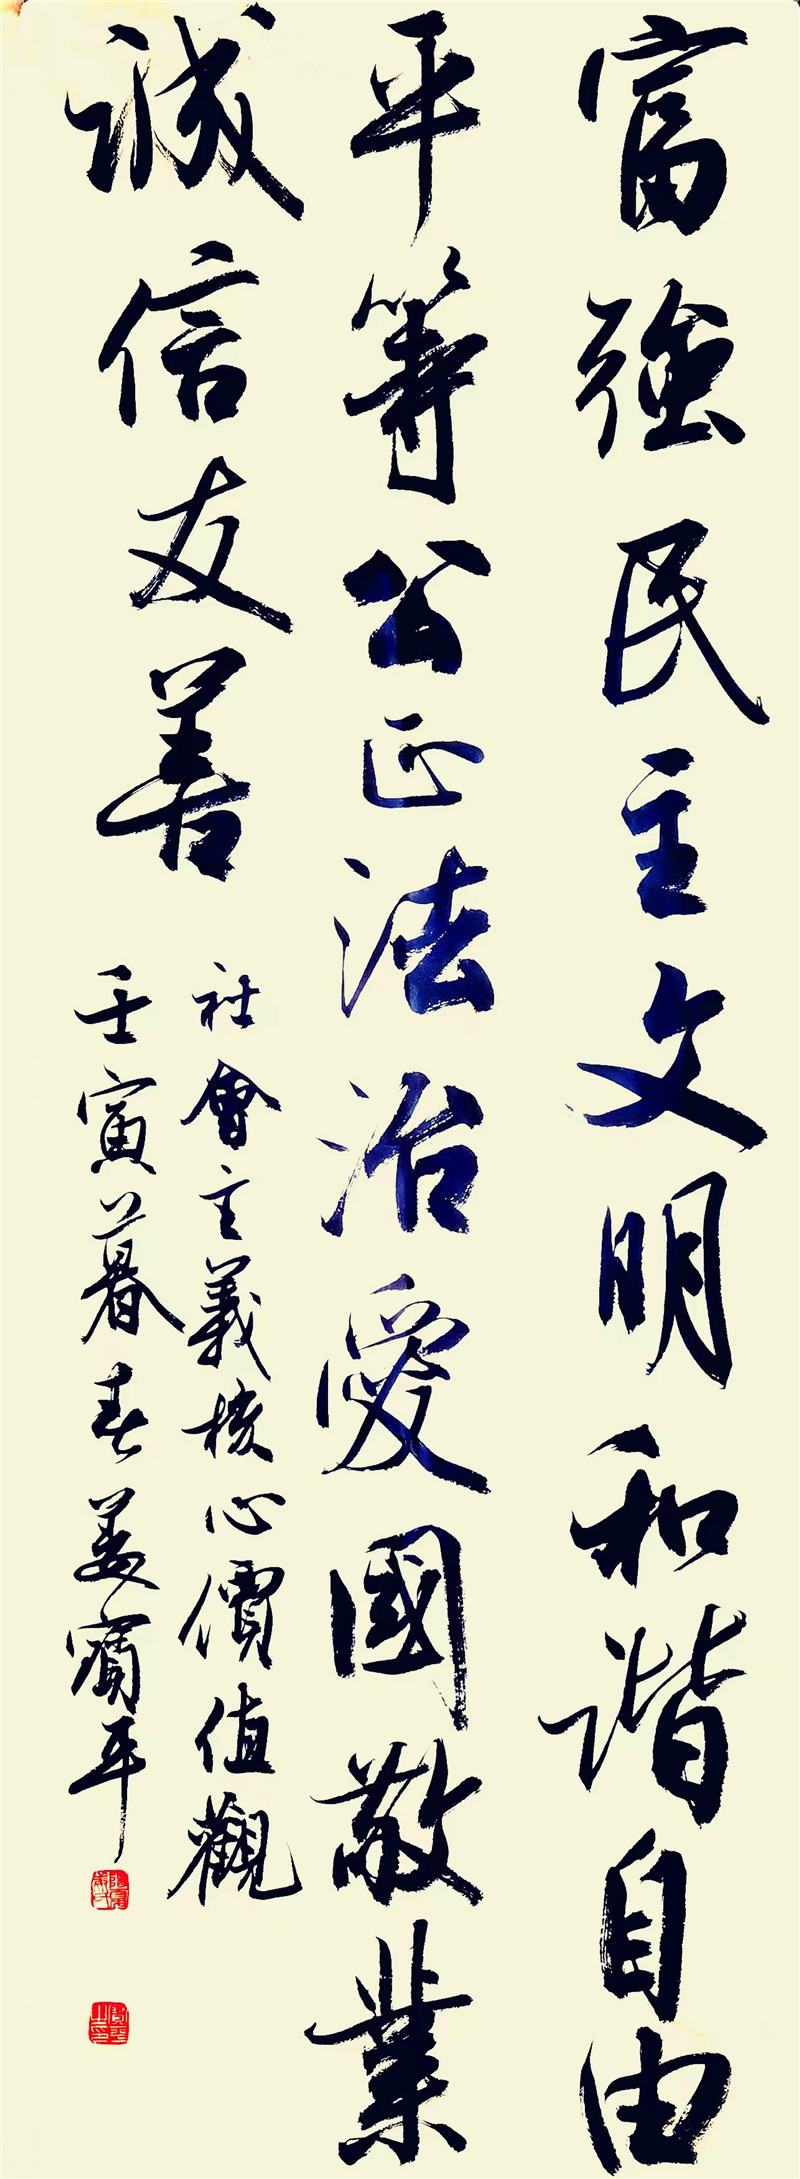 富強民主文明和谐自由
平等公正法治愛國敬業
誠信友善
社會主義核心價值觀
壬寅暮春姜寶平